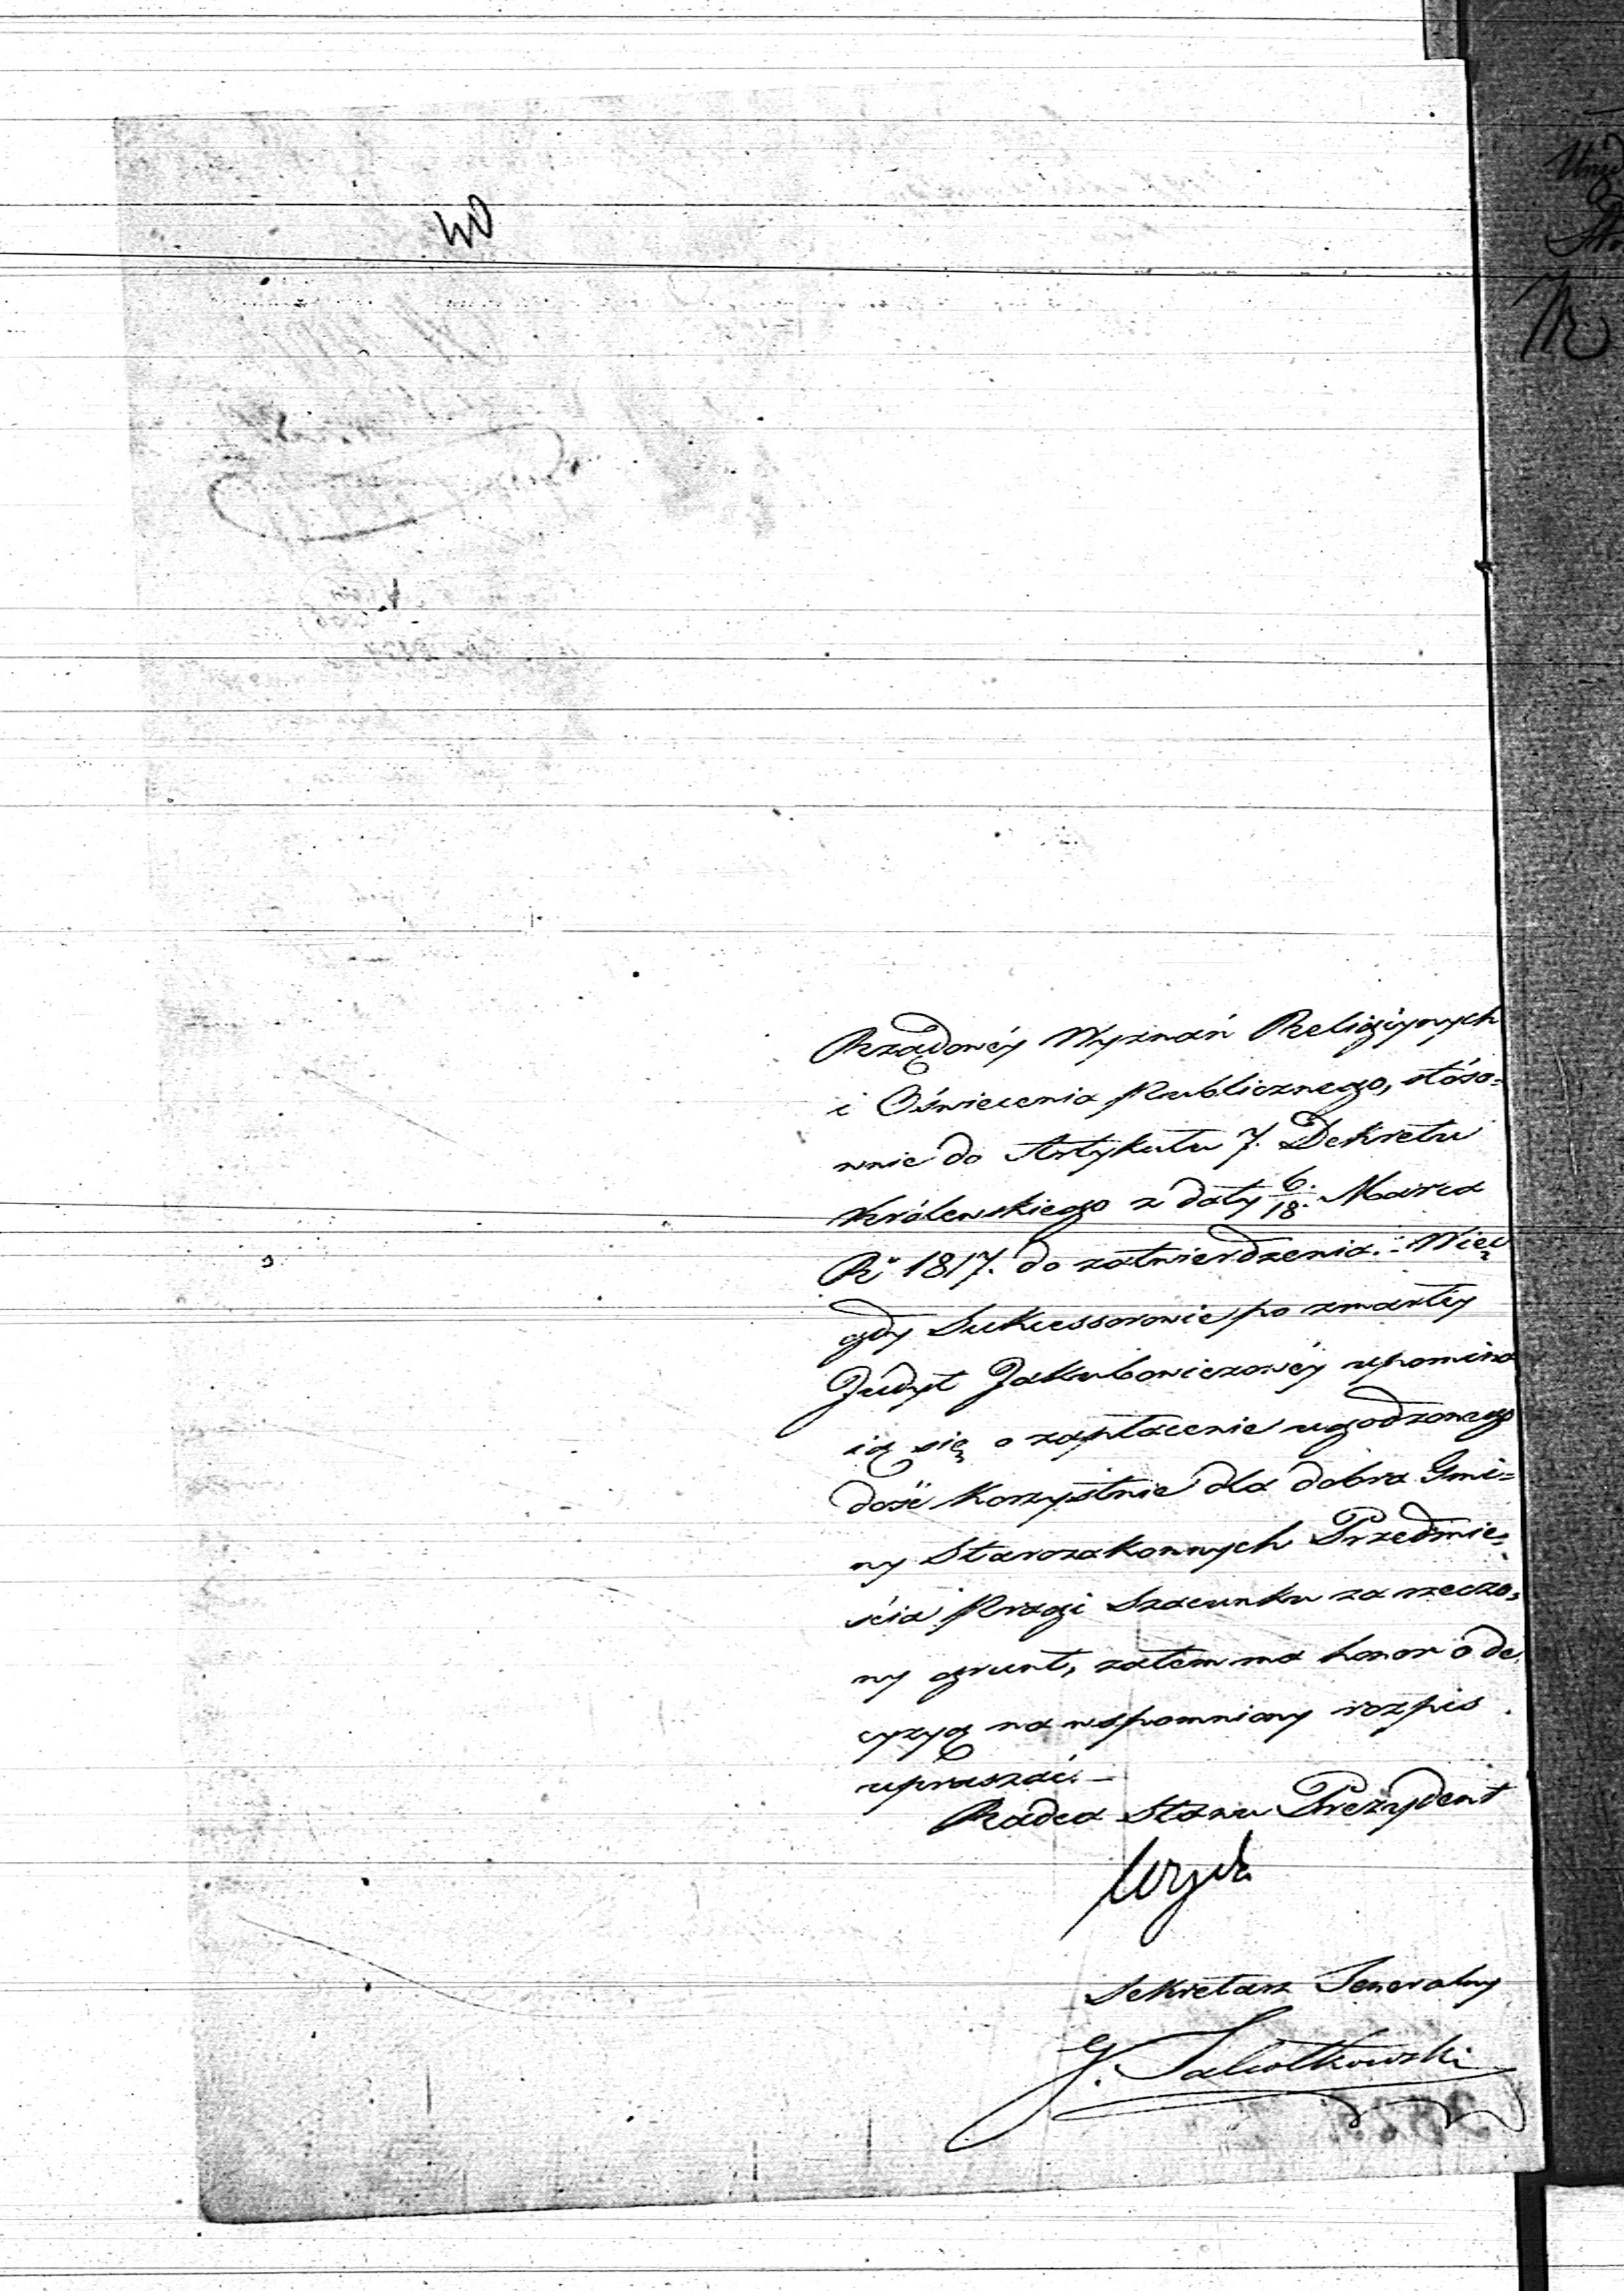 40
Rządowéy Wyznań Religiynych
i Oświecenia Publicznego, stóso=
wnie do Artykułu 7. Dekretu
Królewskiego z daty 6/18. Marca
Rº 1817. do zatwierdzenia. Więc
gdy Sukcessorowie po zmarłéy
Judyt Jakubowiczowéy upomina
ią się o zapłacenie ugodzonego
dość korzystnie dla dobra Gmi=
ny Starozakonnych Przedmie=
ścia Pragi Szacunku za rzeczo=
ny grunt, zatem ma honor o de
cyzyą na wspomniony rozpis
upraszać. —
Radca Stanu Prezydent
Sekretarz Jeneralny